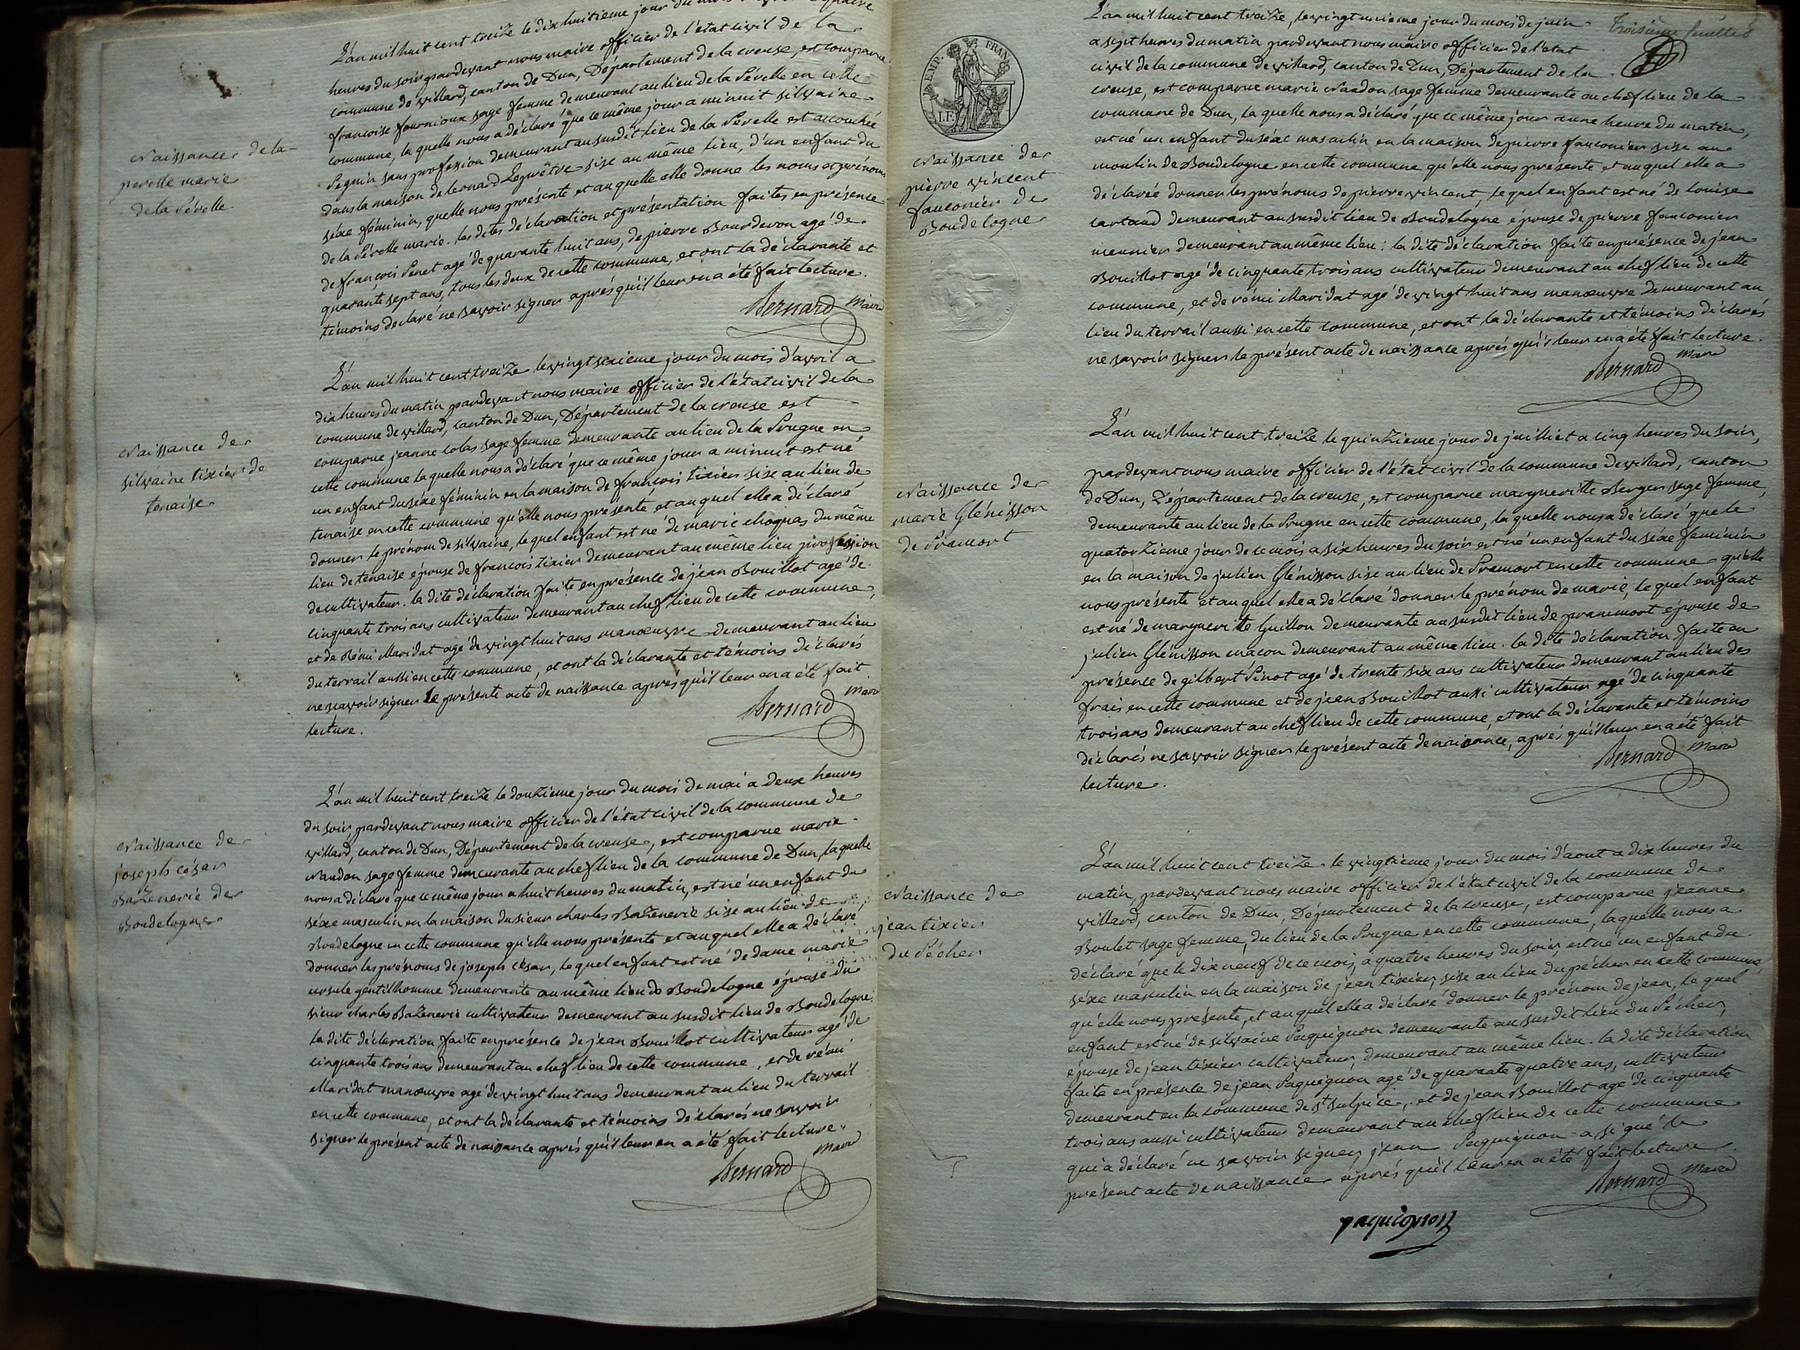 L'an mil huit cent treize le dix huitieme jour du mois
heures du soir pardevant nous maire officier de l'état civil de la
commune de villard, canton de Dun, Département de la creuse, est comparue
françoise fournioux sage femme demeurant au lieu de la Pérelle en cette
commune, la quelle nous a déclaré que ce même jour a minuit silvaine
Peguin sans profession demeurant au susdit lieu de la Pérelle est accouchée
dans la maison de leonard Leprêtre size au même lieu, d'un enfant du
séxe féminin, quelle nous présente et au quelle elle donne les noms et prénoms
de la Pérelle marie. les dites déclaration et présentation faites en présence
de françois Penet agé de quarante huit ans, de pierre Bourdevon agé de
quarante sept ans, tous les deux de cette commune, et ont la déclarante et
témoins déclaré ne savoir signer apres qu'il leur en a été fait lecture.
Bernard Maire
Naissance de la
perelle marie
de la Pérelle
L'an mil huit cent treize le vingt sixieme jour du mois d'avril a
dix heures du matin pardevant nous maire officier de l'état civil de la
commune de villard, canton de Dun, Département de la creuse est
comparue jeanne sage femme demeurante au lieu de la Prugne en
cette commune la quelle nous a déclaré que ce même jour a minuit est né
un enfant du séxe féminin en la maison de françois tixier sise au lieu de
tenaise en cette commune qu'elle nous présente et au quel elle a déclaré
donner le prénom de silvaine, le quel enfant est né de marie chognas du même
lieu de tenaise épouse de francois tixier demeurant au même lieu profession
de cultivateur. la dite déclaration faite en présence de jean Bouillot agé de
cinquante trois ans cultivateur demeurant au chef lieu de cette commune,
et de Rémi Maridat agé de vingt huit ans manœuvre demeurant au lieu
du terrail aussi en cette commune, et ont la déclarante et témoins déclarés
ne savoir signer le présente acte de naissance après qu'il leur en a été fait
lecture.
Bernard Maire
Naissance de
silvaine tixier de
tenaise
L'an mil huit cent treize le douzieme jour du mois de mai a deux heures
du soir, pardevant nous maire officier de l'état civil de la commune de
villard, canton de Dun, Département de la creuse, est comparue marie
Nandon sage femme demeurante au chef lieu de la commune de Dun, la quelle
nous a déclaré que ce même jour a huit heures du matin, est né un enfant du
séxe masculin en la maison du sieur charles Bazenerie sise au lieu de
Boudelogne en cette commune qu'elle nous présente et au quel elle a déclaré
donner les prénoms de joseph césar, le quel enfant est né de dame marie
ursule gentilhomme demeurante au même lieu de Boudelogne épouse du
sieur charles Bazenerie cultivateur demeurant au susdit lieu de Boudelogne.
la dite déclaration faite en présence de jean Bouillot cultivateur agé de
cinquante trois ans demeurant au chef lieu de cette commune, et de rémi
Maridat manœuvre agé de vingt huit ans demeurant au lieu du terrail
en cette commune, et ont la déclarante et témoins déclarés ne savoir
signer le présent acte de naissance après qu'il leur en a été fait lecture.
Bernard Maire
Naissance de
joseph césar
Bazenerie de
Boudelogne
troisième feuillet
EMP. FRAN.
L'an mil huit cent treize, le vingt unieme jour du mois de juin
a sept heures du matin pardevant nous maire officier de l'état
civil de la commune de villard, canton de Dun, Département de la
creuse, est comparue marie Nandon sage femme demeurante au chef lieu de la
commune de Dun, la quelle nous a déclaré que ce même jour a une heure du matin,
est né un enfant du séxe masculin en la maison de pierre fauconier sise au
moulin de Boudelogne en cette commune qu'elle nous présente et au quel elle a
déclarée donner les prénoms de pierre vincent, le quel enfant est né de louise
cartaud demeurant au susdit lieu de Boudelogne épouse de pierre fauconier
meunier demeurant au même lieu : la dite déclaration faite en présence de jean
Bouillot agé de cinquante trois ans cultivateur demeurant au chef lieu de cette
commune, et de rémi Maridat agé de vingt huit ans manœuvre demeurant au
lieu du terrail aussi en cette commune, et ont la déclarante et témoins déclarés
ne savoir signer le présent acte de naissance après qu'il leur en a été fait lecture.
Bernard Maire
Naissance de
pierre vincent
fauconier de
Boudelogne
L'an mil huit cent treize le quinzieme jour de juilliet a cinq heures du soir,
pardevant nous maire officier de l'état civil de la commune de villard, canton
de Dun, Département de la creuse, est comparue margueritte Berger sage femme,
demeurante au lieu de la Prugne en cette commune, la quelle nous a déclaré que le
quatorzieme jour de ce mois a six heures du soir est né un enfant du séxe féminin
en la maison de julien Glénisson sise au lieu de Pramort en cette commune qu'elle
nous présente et au quel elle a déclaré donner le prénom de marie, le quel enfant
est né de margueritte Guillon demeurante au susdit lieu de pranimort épouse de
julien Glénisson macon demeurant au même lieu. la dite déclaration faite en
présence de gilbert Pinot agé de trente six ans cultivateur demeurant au lieu des
frais en cette commune et de jean Bouillot aussi cultivateur agé de cinquante
trois ans demeurant au chef lieu de cette commune, et ont la déclarante et témoins
déclarés ne savoir signer le présent acte de naissance, après qu'il leur en a été fait
lecture.
Bernard Maire
Naissance de
marie Glénisson
de Pramort
L'an mil huit cent treize le vingtieme jour du mois d'aout a dix heures du
matin, pardevant nous maire officier de l'état civil de la commune de
villard, canton de Dun, Département de la creuse, est comparue jeanne
Boulet sage femme, du lieu de la Prugne en cette commune, laquelle nous a
déclaré que le dix neuf de ce mois, a quatre heures du soir, est né un enfant du
séxe masculin en la maison de jean tixier, sise au lieu du pécher en cette commune
qu'elle nous présente, et au quel elle a déclaré donner le prénom de jean, le quel
enfant est né de silvaine Paquignon demeurante au susdit lieu du Pécher,
épouse de jean tixier cultivateur, demeurant au même lieu. la dite déclaration
faite en présente de jean Paquignon agé de quarante quatre ans, cultivateur
demeurant en la commune de st sulpice, et de jean Bouillot agé de cinquante
trois ans aussi cultivateur demeurant au chef lieu de cette commune
qui a déclaré ne savoir signer, jean Paquignon a signé le
présent acte de naissance après qu'il leur en a été fait lecture
Bernard Maire
paquignon
Naissance de
jean tixier
du Pécher